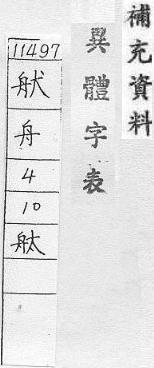 補充資料
異體字表
11497
舧
舟
4
10
舦